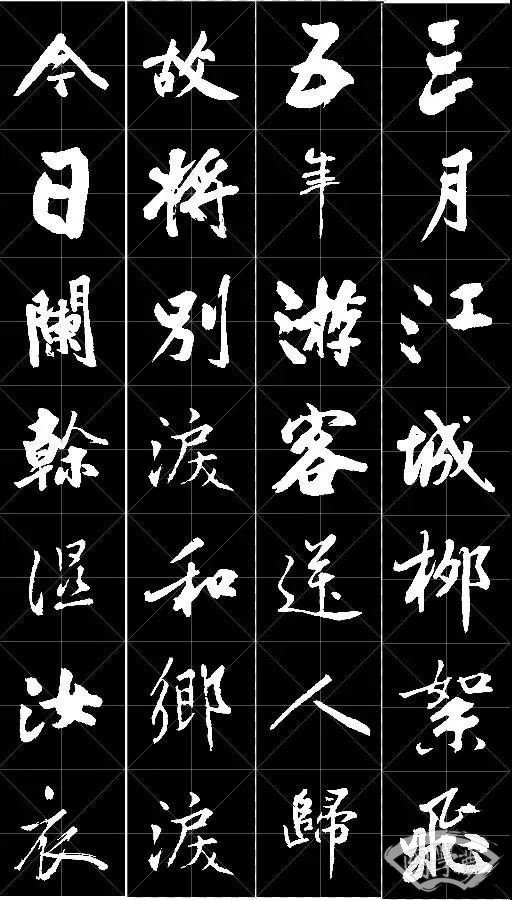 三月江城柳絮飛
五年游客送人歸
故將別淚和鄉淚
今日闌榦濕汝衣